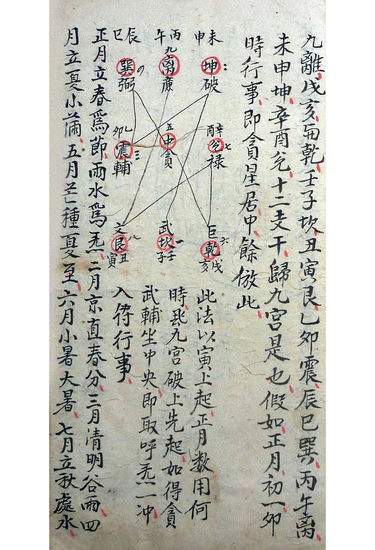 九離戊亥乾壬子坎丑寅艮乙卯震辰巳巽丙午离
未申坤辛酉兊十二支干歸九宮是也假如正月初一卯
時行事即貪星居中餘倣此
未申
坤破
丙午
九离廉
辰巳
巽弼
辛酉
七兊祿
五中貪
乙卯
震輔
三
戊亥
六
巨乾
武坎壬子
一
八
文艮丑寅
此法以寅上起正月数用何
時飛九宮破上先起如得貪
武輔坐中央即取呼炁一冲
入符行事
正月立春爲節雨水爲炁二月京直春分三月清明谷雨四
月立夏小蒲五月芒種夏至六月小暑大暑七月立秋處水